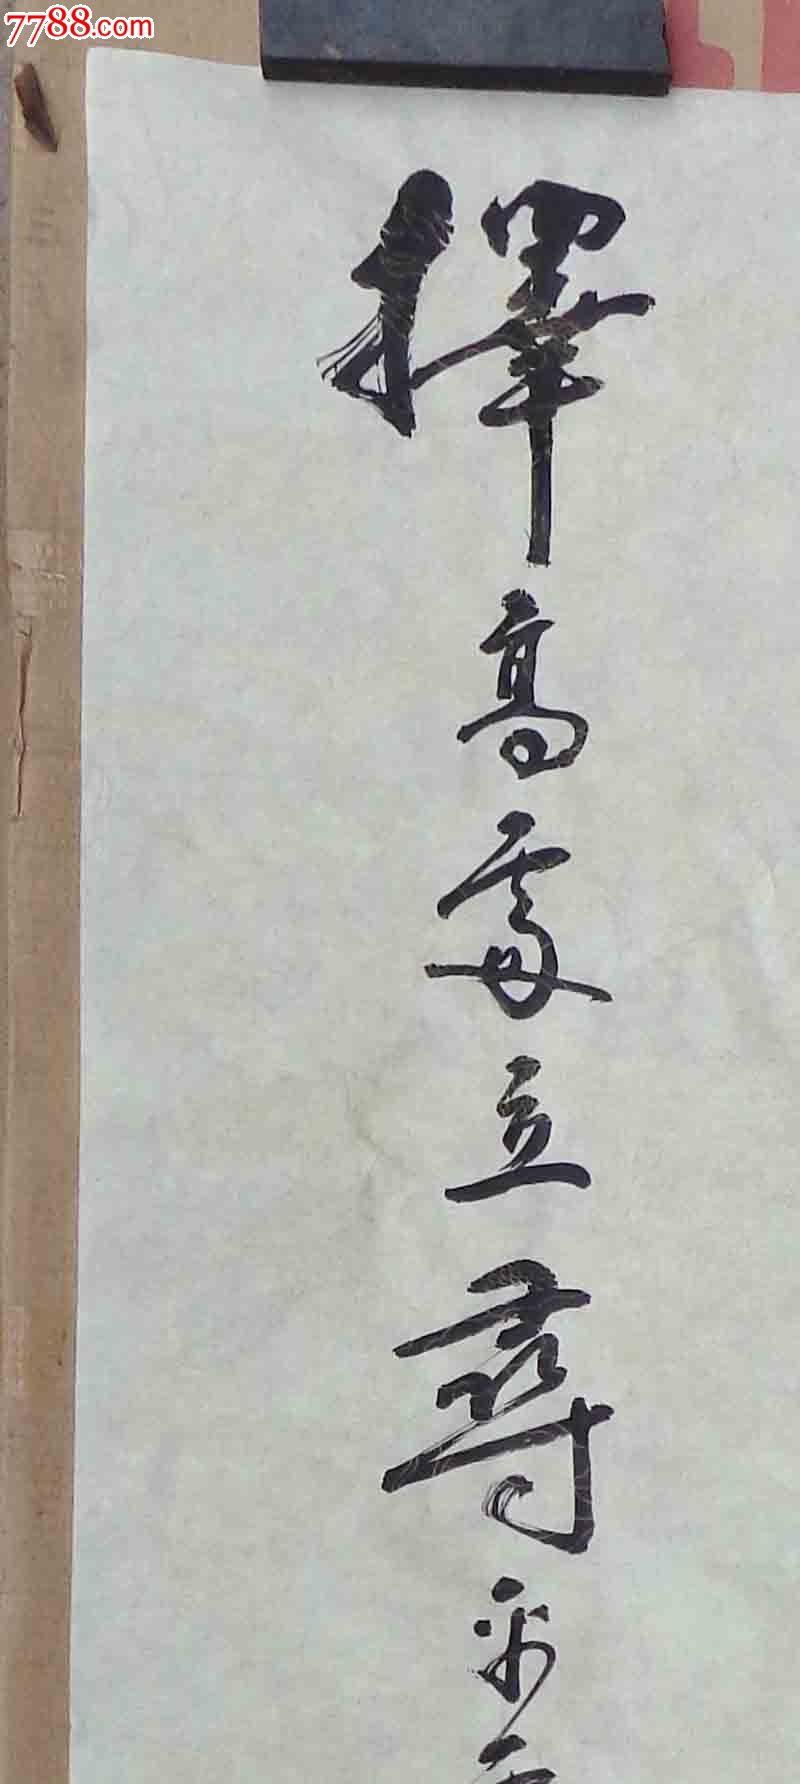 7788.com
擇高處立尋平